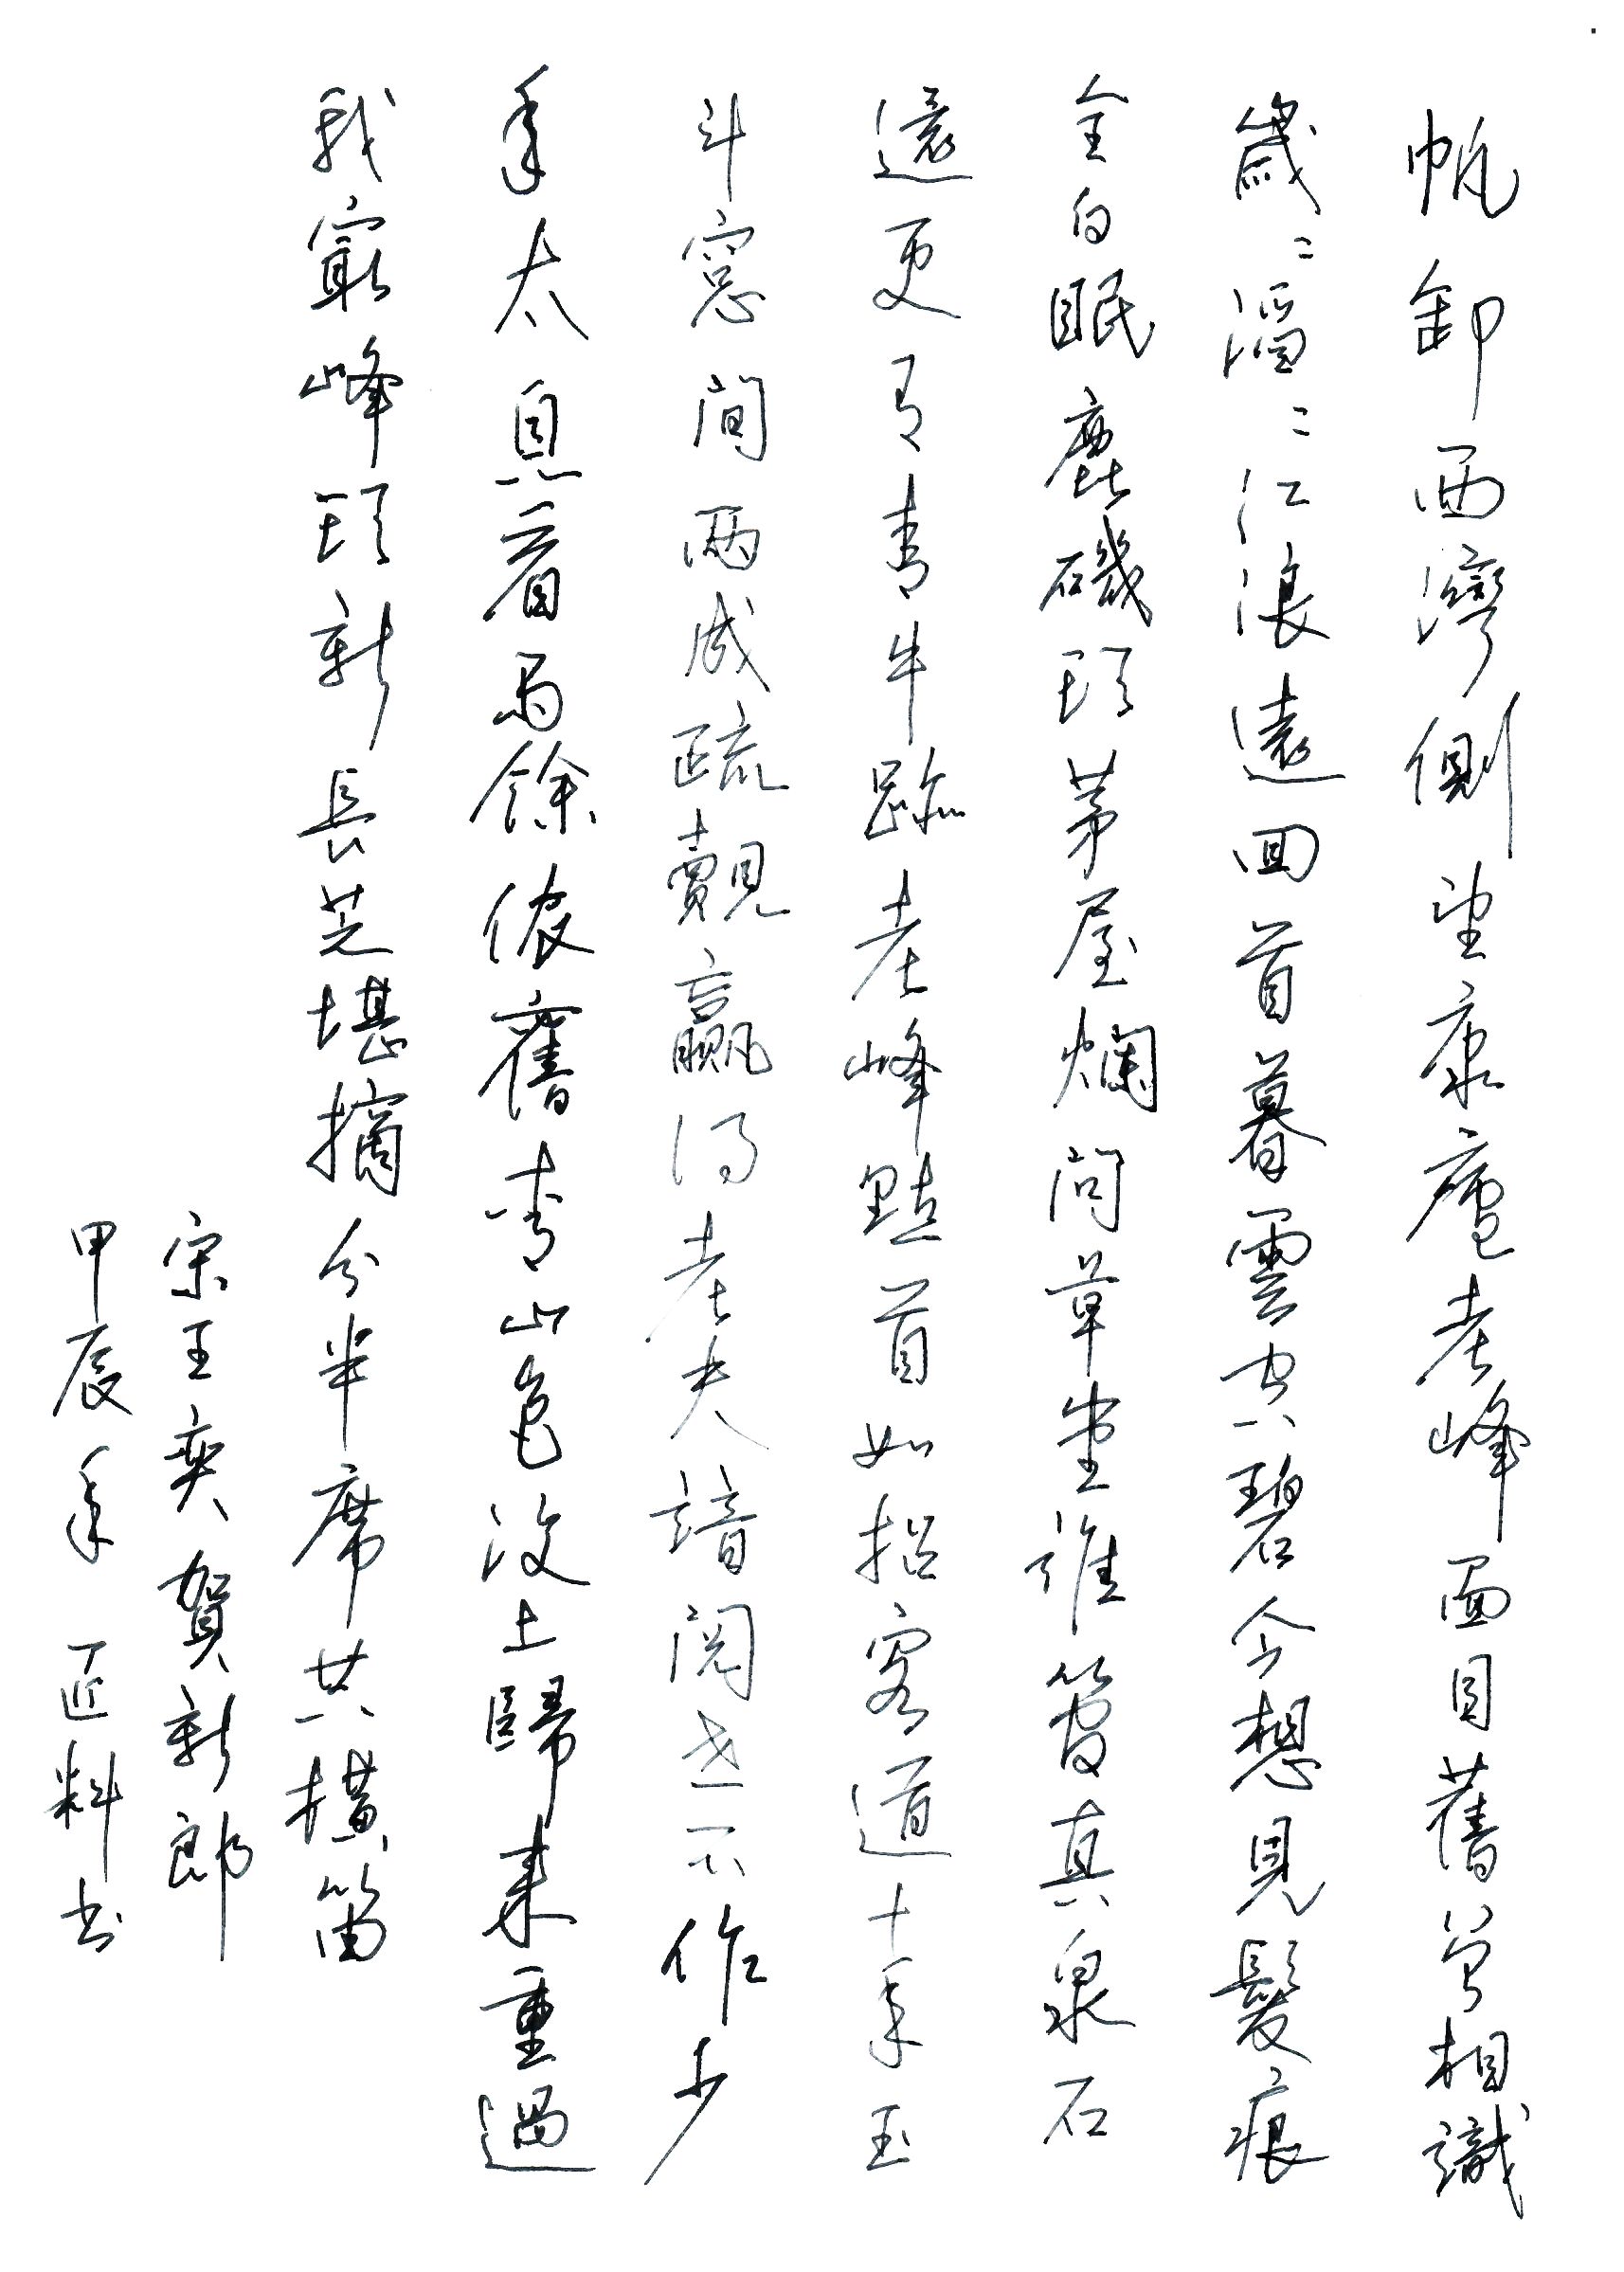 帆卸西灣側望康廬老峰面目舊曾相識
歲〻滔〻江浪遠回首暮雲空碧今想見鬢痕
全白眠鹿磯頭茅屋爛問草堂誰管真泉石
還更有青牛跡老峰點首如招客道十年玉
斗窓間兩成疏覿贏得老夫諳閱世不作少
年太息看馬餘儂舊青山色没土歸來重過
我窮峰頭新長芝堪摘分半席共橫笛
宋王奕賀新郎
甲辰年匠料书